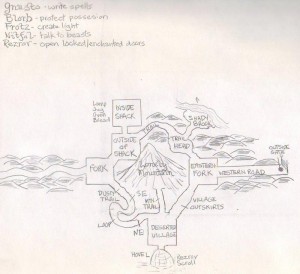 Gnusto - write spells
Blorb - protect possesion
Frotz - create light
Nitfol - talk to beasts
Rezrov - open locked/enchanted doors
Lamp
Jug
Bread
INSIDE
SHACK
SHADY
BROOK
OUTSIDE
OF
SHACK
TRAIL
TRAIL
HEAD
Lonely
Mountain
OUTSIDE
GATE
FORK
EASTERN
FORK
WESTERN ROAD
DUSTY
TRAIL
S.E.
MTN.
TRAIL
VILLAGE
OUTSKIRTS
LOOP
NE
DESERTED
VILLAGE
HOVEL
Rezrov
Scroll